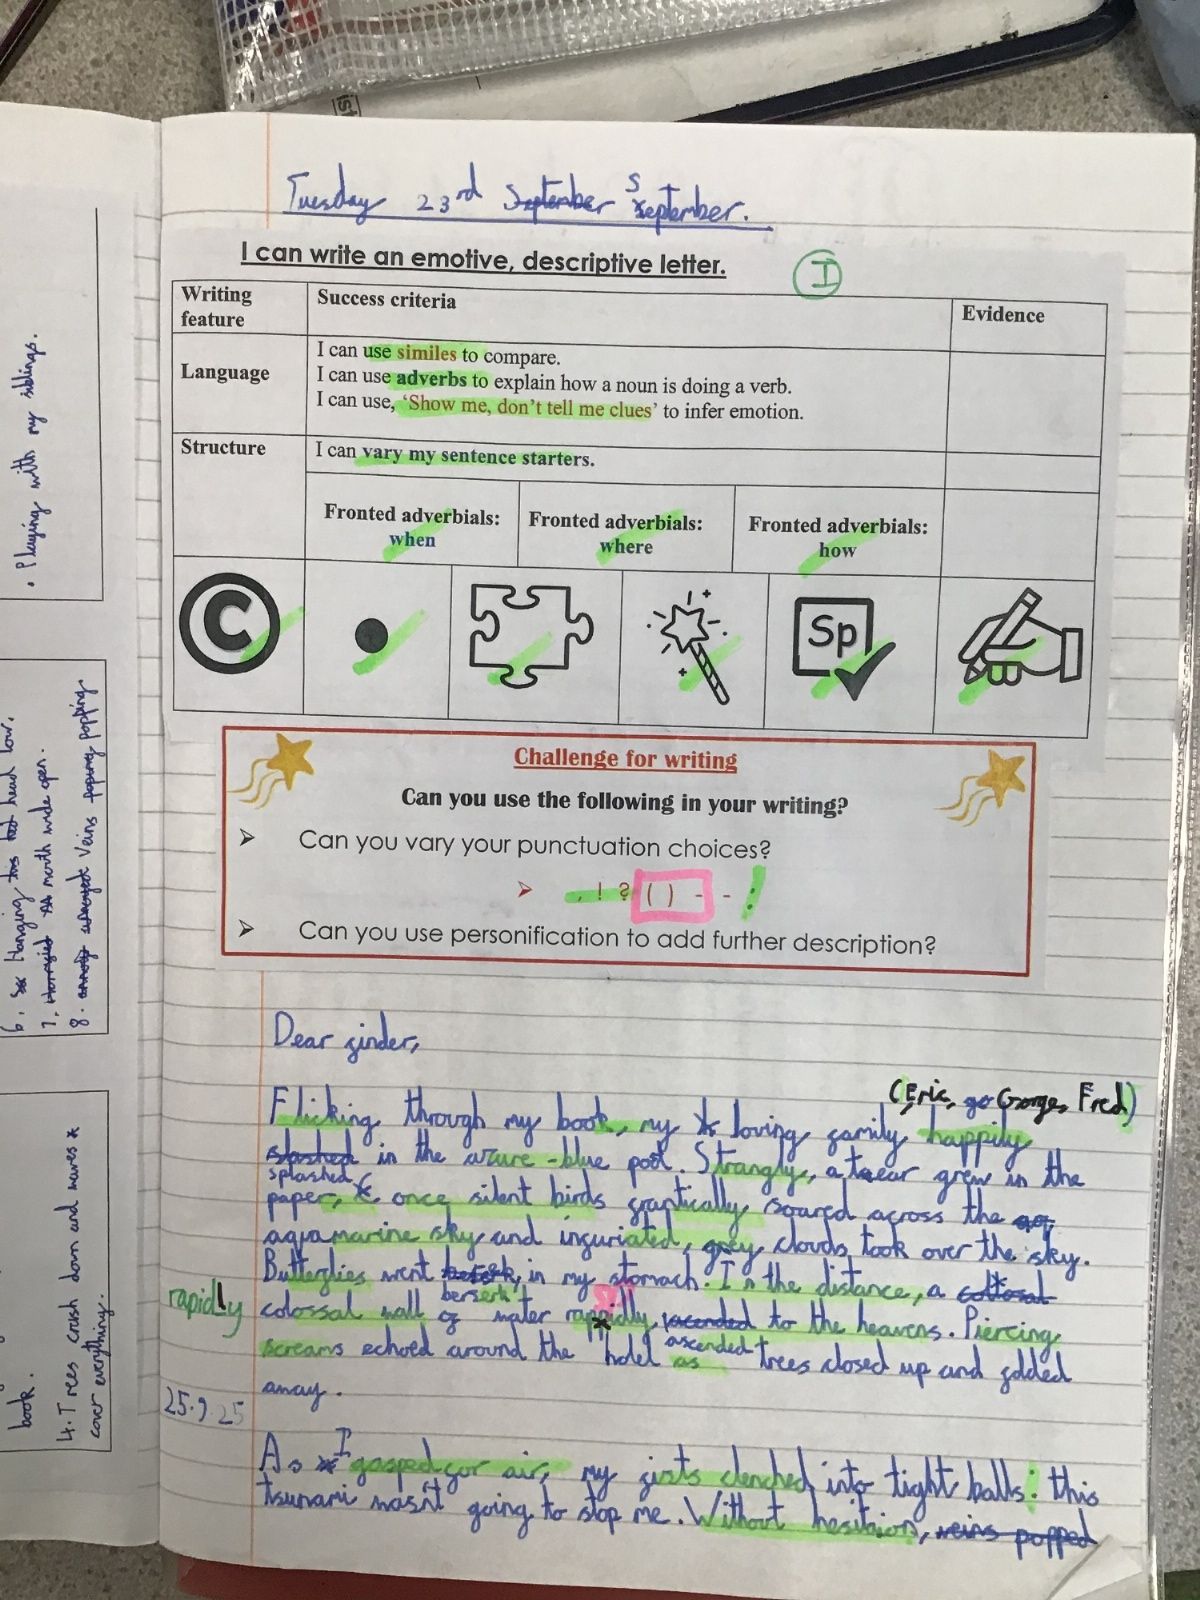 Tuesday 23rd September September.
I can write an emotive, descriptive letter.
I
Writing feature
Success criteria
Evidence
Language
I can use similes to compare.
I can use adverbs to explain how a noun is doing a verb.
I can use, 'Show me, don't tell me clues' to infer emotion.
Structure
I can vary my sentence starters.
Fronted adverbials: when
Fronted adverbials: where
Fronted adverbials: how
C
Sp
Challenge for writing
Can you use the following in your writing?
➢ Can you vary your punctuation choices?
➢ , ! ? ( ) - - :
➢ Can you use personification to add further description?
Dear finder,
(Eric, go George, Fred)
Flicking through my book, my loving family happily
slashed in the azure-blue pool. Strangly, a tear grew in the
splashed
paper, once silent birds frantically soared across the
aquamarine sky and infuriated, grey clouds took over the sky.
Butterflies went in my stomach. In the distance, a colltosal
berserk
rapidly
colossal wall of water rappidly, racended to the heavens. Piercing
ascended
screams echoed around the hotel as trees closed up and folded
away.
25.9.25
As I gasped for air, my fists clenched into tight balls: this
tsunami wasn't going to stop me. Without hesitaion, veins popped
. Playing with my siblings.
6. Hanging his head low.
7. Horrified mouth wide open.
8. Veins poping popping
book.
4. Trees crash down and waves
cover everything.
ist